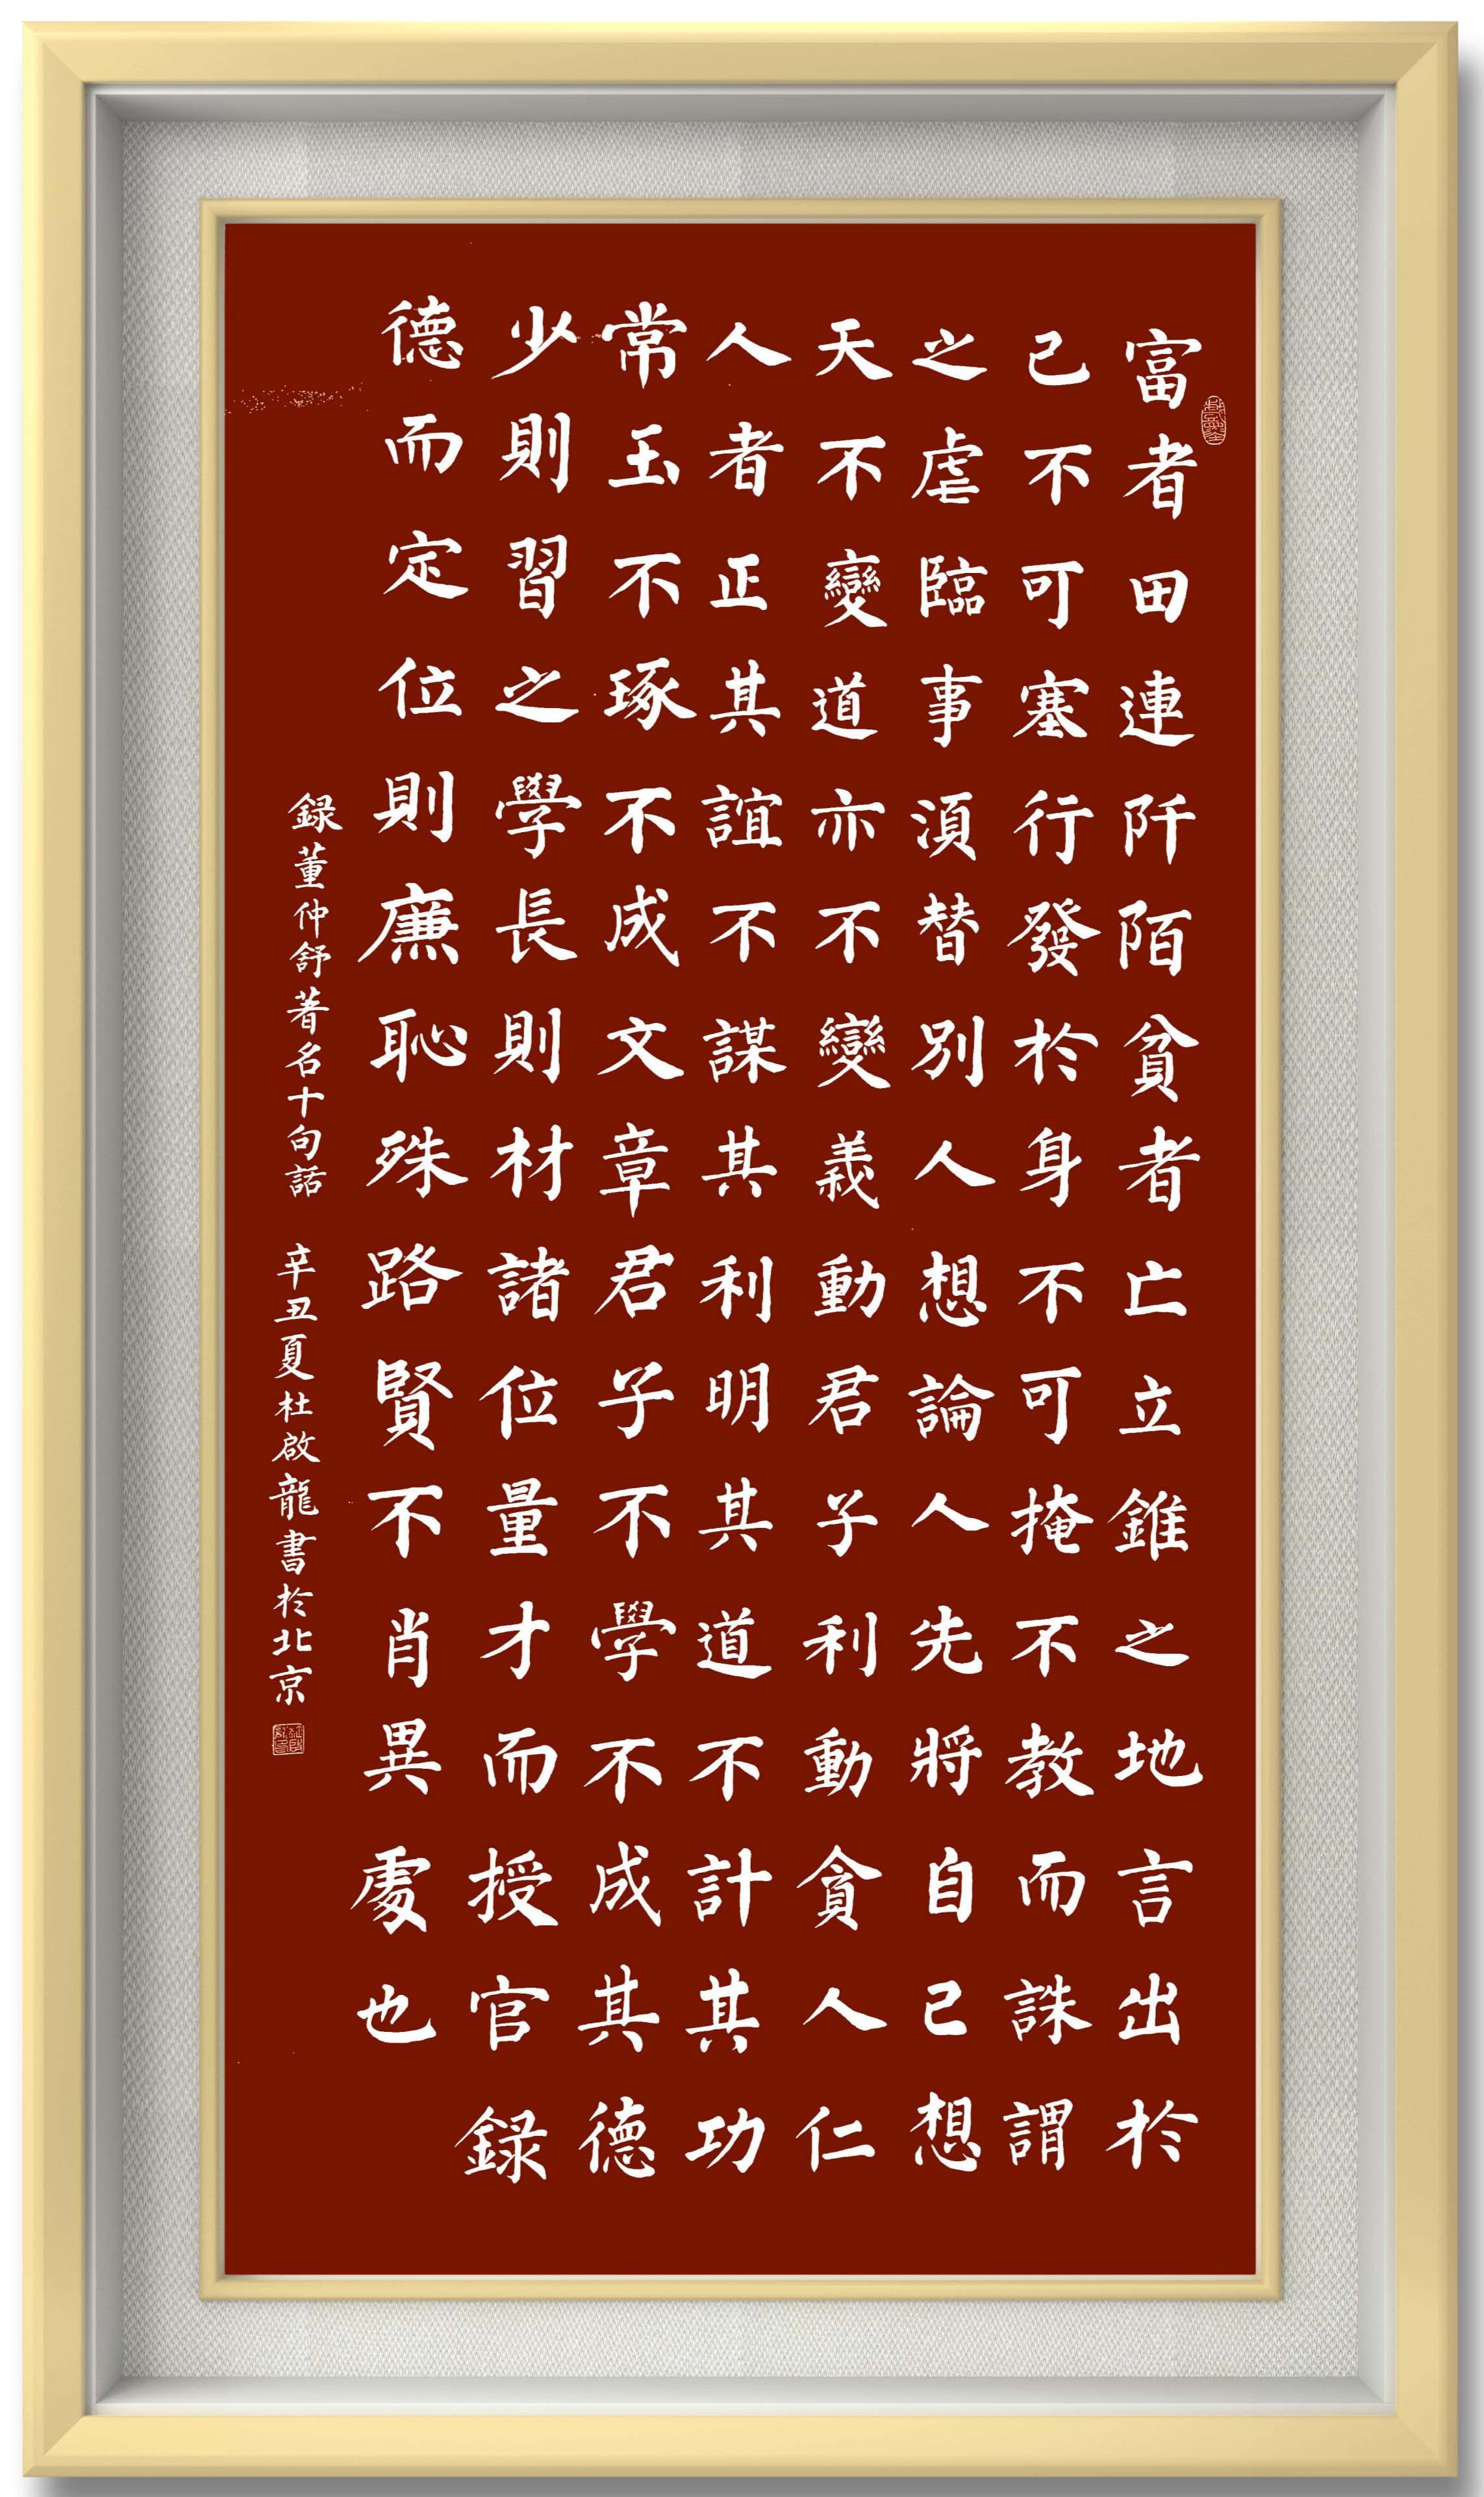 富者田連阡陌貧者亡立錐之地言出於
己不可塞行發於身不可掩不教而誅謂
之虐臨事須替別人想論人先將自己想
天不變道亦不變義動君子利動貪人仁
人者正其誼不謀其利明其道不計其功
常玉不琢不成文章君子不學不成其德
少則習之學長則材諸位量才而授官錄
德而定位則廉恥殊路賢不肖異處也
錄董仲舒著名十句話 辛丑夏杜啟龍書於北京